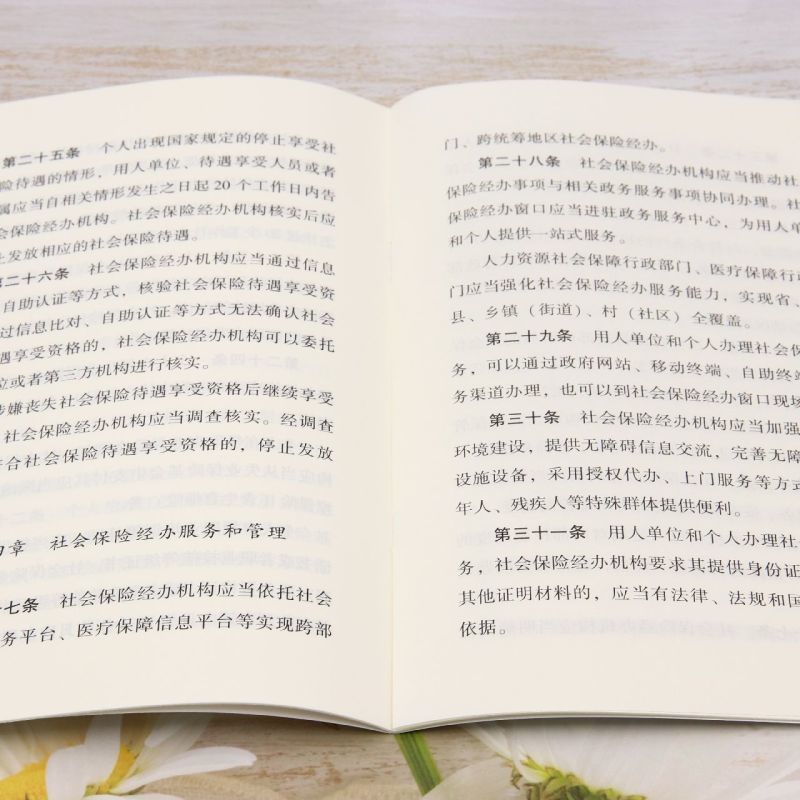 第二十五条 个人出现国家规定的停止享受社
险待遇的情形，用人单位、待遇享受人员或者
属应当自相关情形发生之日起20个工作日内告
会保险经办机构。社会保险经办机构核实后应
止发放相应的社会保险待遇。
第二十六条 社会保险经办机构应当通过信息
自助认证等方式，核验社会保险待遇享受资
过信息比对、自助认证等方式无法确认社会
遇享受资格的，社会保险经办机构可以委托
位或者第三方机构进行核实。
涉嫌丧失社会保险待遇享受资格后继续享受
社会保险经办机构应当调查核实。经调查
符合社会保险待遇享受资格的，停止发放
章 社会保险经办服务和管理
十七条 社会保险经办机构应当依托社会
务平台、医疗保障信息平台等实现跨部
门、跨统筹地区社会保险经办。
第二十八条 社会保险经办机构应当推动社
保险经办事项与相关政务服务事项协同办理。社
保险经办窗口应当进驻政务服务中心，为用人单
和个人提供一站式服务。
人力资源社会保障行政部门、医疗保障行政
门应当强化社会保险经办服务能力，实现省、
县、乡镇（街道）、村（社区）全覆盖。
第二十九条 用人单位和个人办理社会保
务，可以通过政府网站、移动终端、自助终端
务渠道办理，也可以到社会保险经办窗口现场
第三十条 社会保险经办机构应当加强
环境建设，提供无障碍信息交流，完善无障
设施设备，采用授权代办、上门服务等方式
年人、残疾人等特殊群体提供便利。
第三十一条 用人单位和个人办理社会
务，社会保险经办机构要求其提供身份证
其他证明材料的，应当有法律、法规和国
依据。